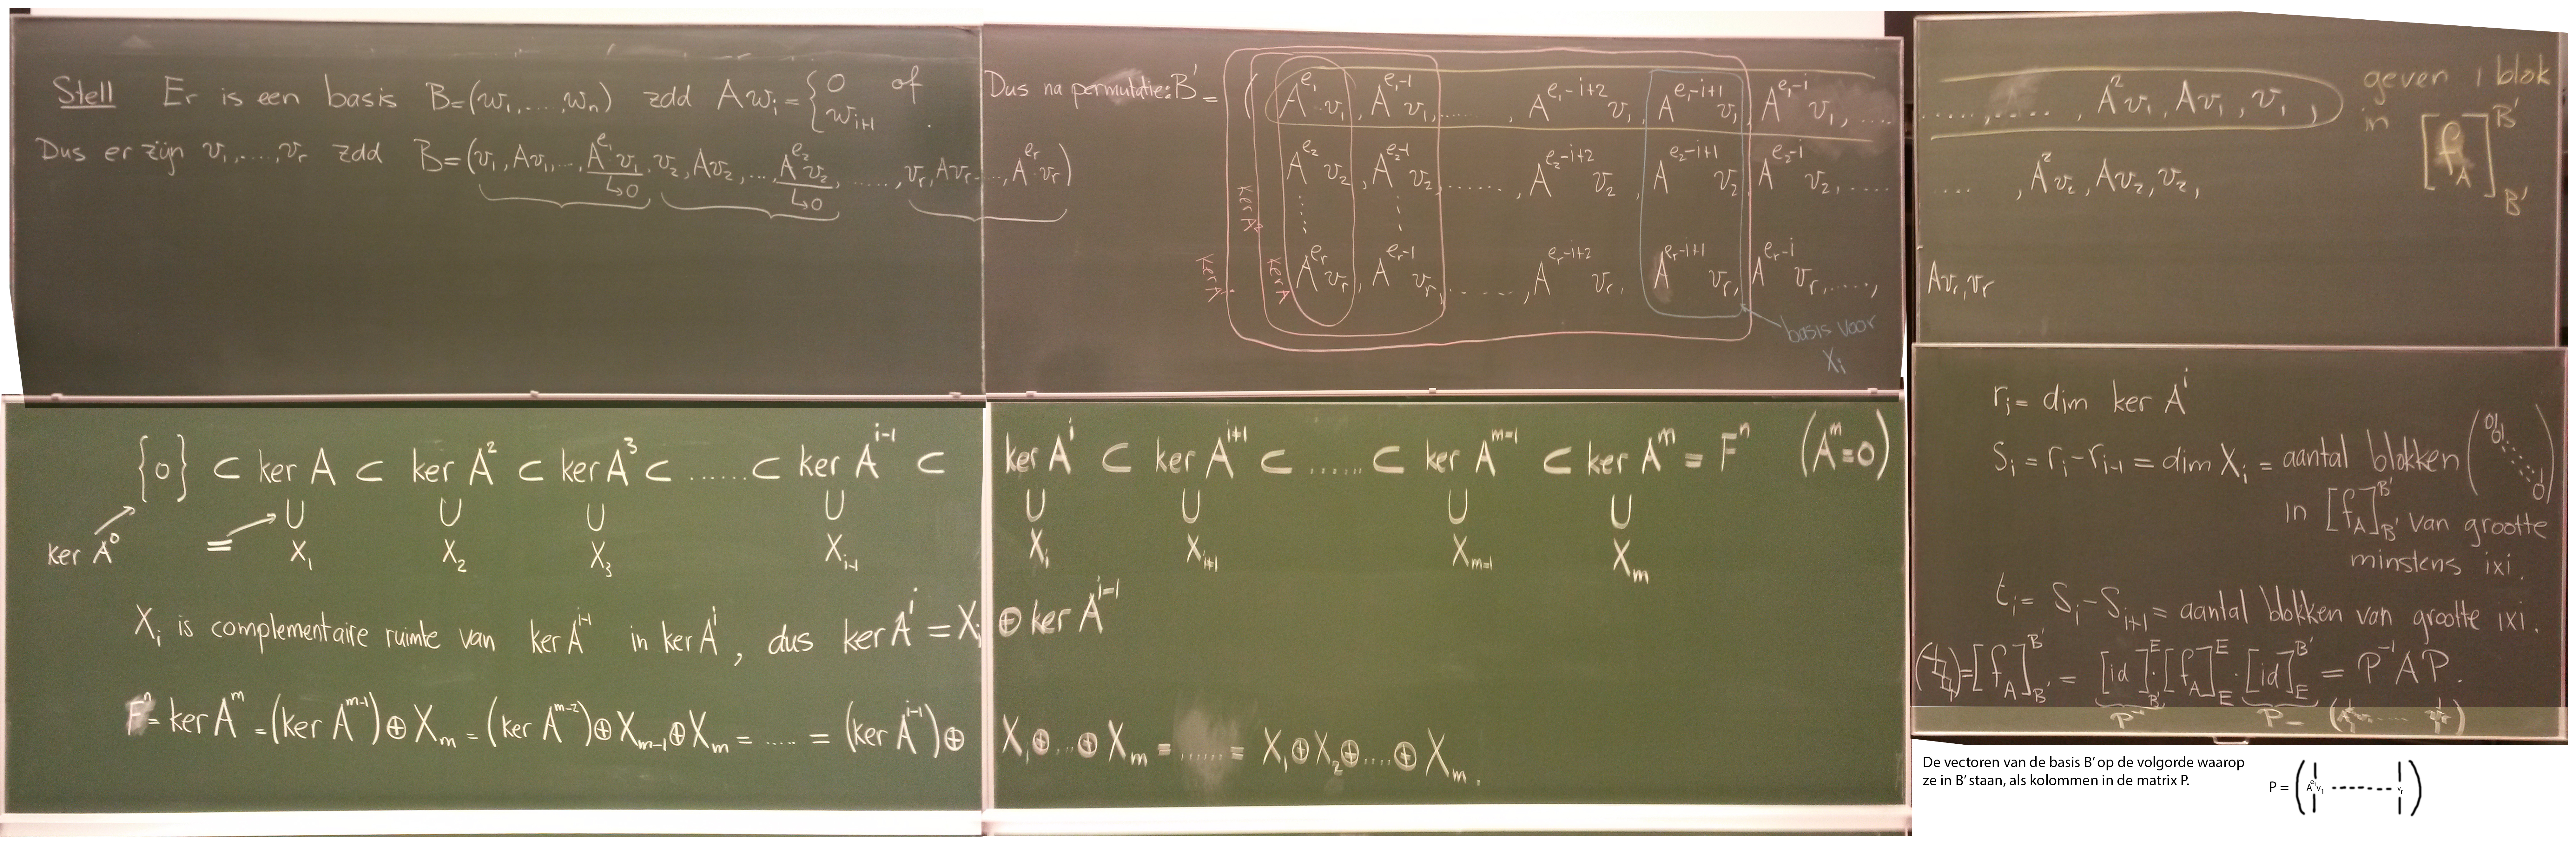 Stell Er is een basis B=(w₁,....wₙ) zdd Awᵢ = { 0 of wᵢ₊₁ .
Dus er zijn v₁,....,vᵣ zdd B=(v₁,Av₁,...,A^{e₁}v₁,v₂,Av₂,...,A^{e₂}v₂,......,vᵣ,Avᵣ....,A^{eᵣ}vᵣ)
↳0 ↳0
Dus na permutatie: B' = ( A^{e₁}v₁, A^{e₁-1}v₁,......, A^{e₁-i+2}v₁, A^{e₁-i+1}v₁, A^{e₁-i}v₁,.... ....., A²v₁, Av₁, v₁,
A^{e₂}v₂, A^{e₂-1}v₂,......., A^{e₂-i+2}v₂, A^{e₂-i+1}v₂, A^{e₂-i}v₂,..... ...., A²v₂, Av₂, v₂,
A^{eᵣ}vᵣ, A^{eᵣ-1}vᵣ,......, A^{eᵣ-i+2}vᵣ, A^{eᵣ-i+1}vᵣ, A^{eᵣ-i}vᵣ,....., Avᵣ, vᵣ
ker A
ker A²
basis voor
Xᵢ
geven 1 blok
in [f_A]^{B'}_{B'}
{0} ⊂ ker A ⊂ ker A² ⊂ ker A³ ⊂ ...... ⊂ ker A^{i-1} ⊂ ker A^i ⊂ ker A^{i+1} ⊂ ...... ⊂ ker A^{m-1} ⊂ ker A^m = F^n (A^m=0)
∪ ∪ ∪ ∪ ∪ ∪ ∪ ∪
ker A⁰ = X₁ X₂ X₃ X_{i-1} X_i X_{i+1} X_{m-1} X_m
X_i is complementaire ruimte van ker A^{i-1} in ker A^i, dus ker A^i = X_i ⊕ ker A^{i-1}
F^n = ker A^m = (ker A^{m-1}) ⊕ X_m = (ker A^{m-2}) ⊕ X_{m-1} ⊕ X_m = ..... = (ker A^{i-1}) ⊕ X_i ⊕...⊕ X_m = ...... = X₁ ⊕ X₂ ⊕....⊕ X_m.
r_i = dim ker A^i
s_i = r_i - r_{i-1} = dim X_i = aantal blokken
in [f_A]^{B'}_{B'} van grootte
minstens ixi.
t_i = s_i - s_{i+1} = aantal blokken van grootte ixi.
= [f_A]^{B'}_{B'} = [id]^E_{B'} · [f_A]^E_E · [id]^{B'}_E = P⁻¹AP.
P⁻¹ P =
De vectoren van de basis B' op de volgorde waarop
ze in B' staan, als kolommen in de matrix P.
P = ( A^{e₁}v₁ ------- vᵣ )